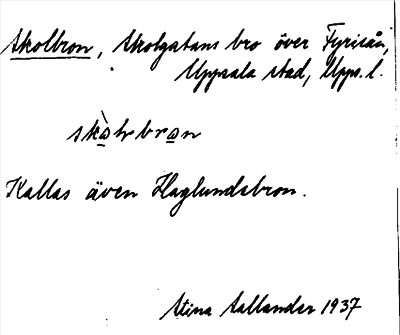 Skolbron, Skolgatans bro över Fyrisån,
Uppsala stad, Upps. l.
skо̀lbron
Kallas även Haglundsbron.
Stina Sallander 1937